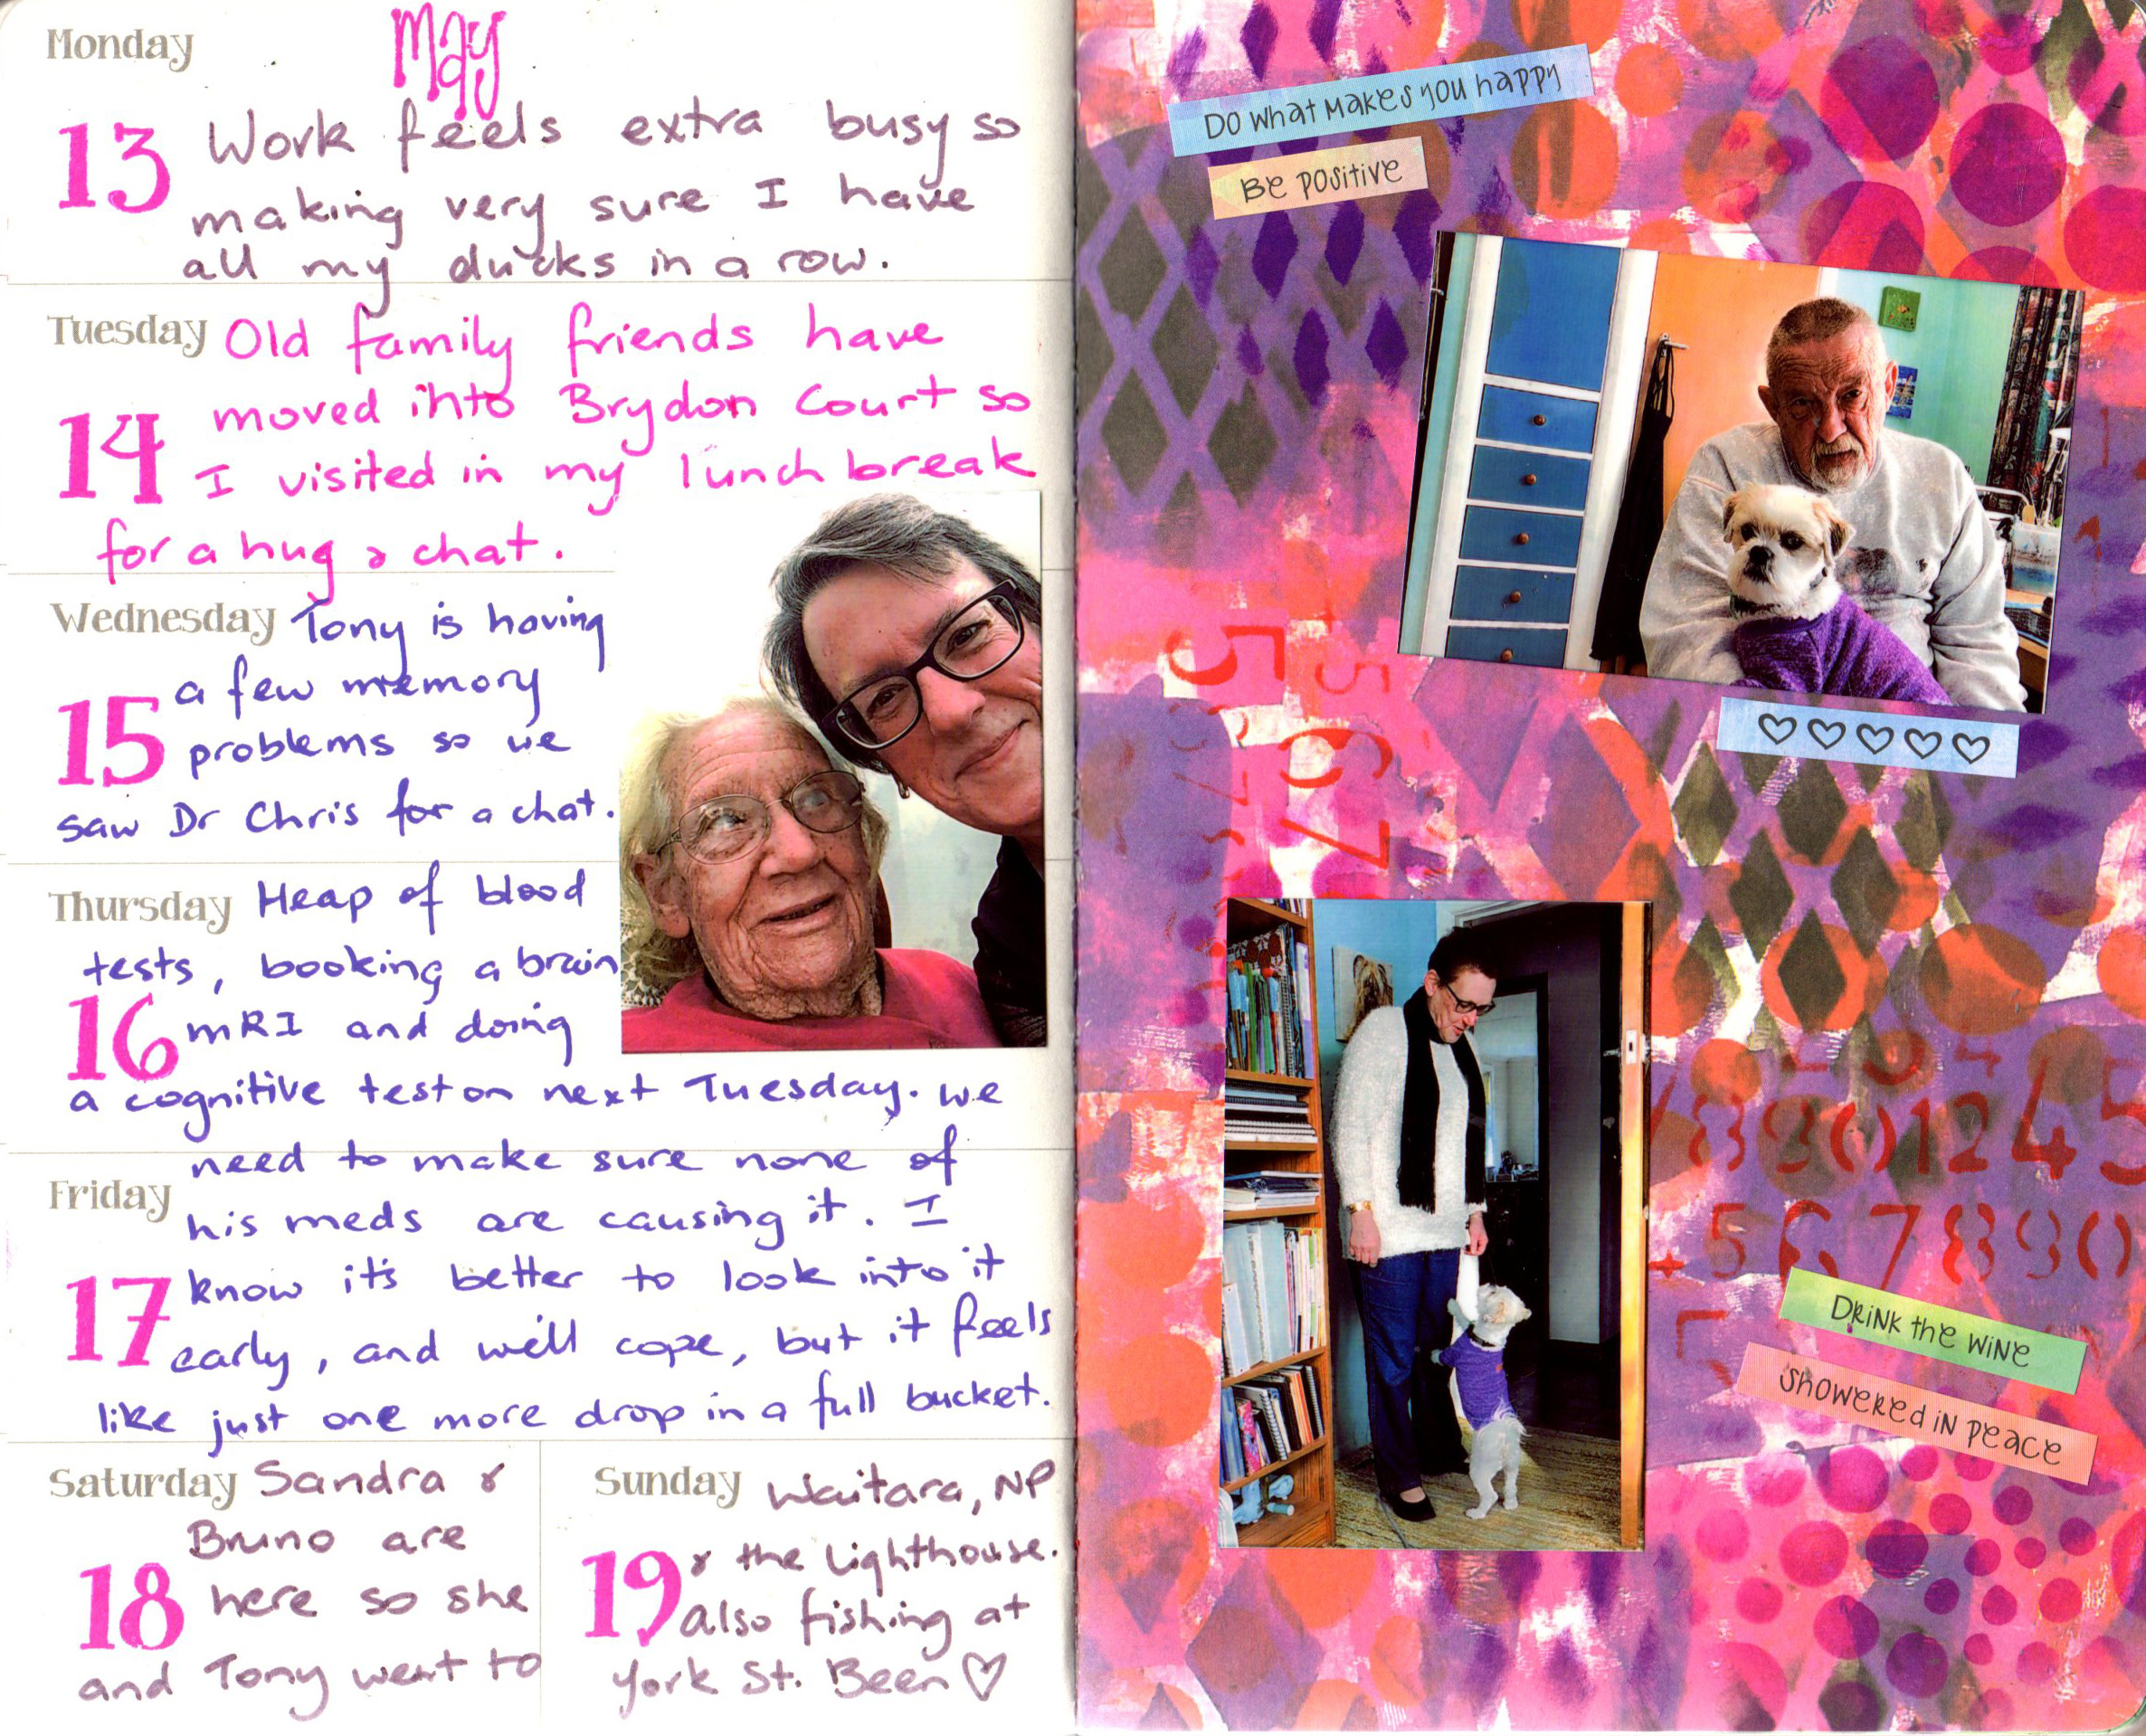 May
Monday
13
Work feels extra busy so
making very sure I have
all my ducks in a row.
Tuesday
14
Old family friends have
moved into Brydon Court so
I visited in my lunch break
for a hug & chat.
Wednesday
15
Tony is having
a few memory
problems so we
saw Dr Chris for a chat.
Thursday
16
Heap of blood
tests, booking a brain
MRI and doing
a cognitive test on next Tuesday. We
need to make sure none of
Friday
17
his meds are causing it. I
know it's better to look into it
early, and we'll cope, but it feels
like just one more drop in a full bucket.
Saturday
18
Sandra &
Bruno are
here so she
and Tony went to
Sunday
19
Waitara, NP
& the Lighthouse.
also fishing at
York St. Been ♡
Do what makes you happy
Be positive
♡♡♡♡♡
5
5
6
7
890 1245
567890
Drink the wine
Showered in peace